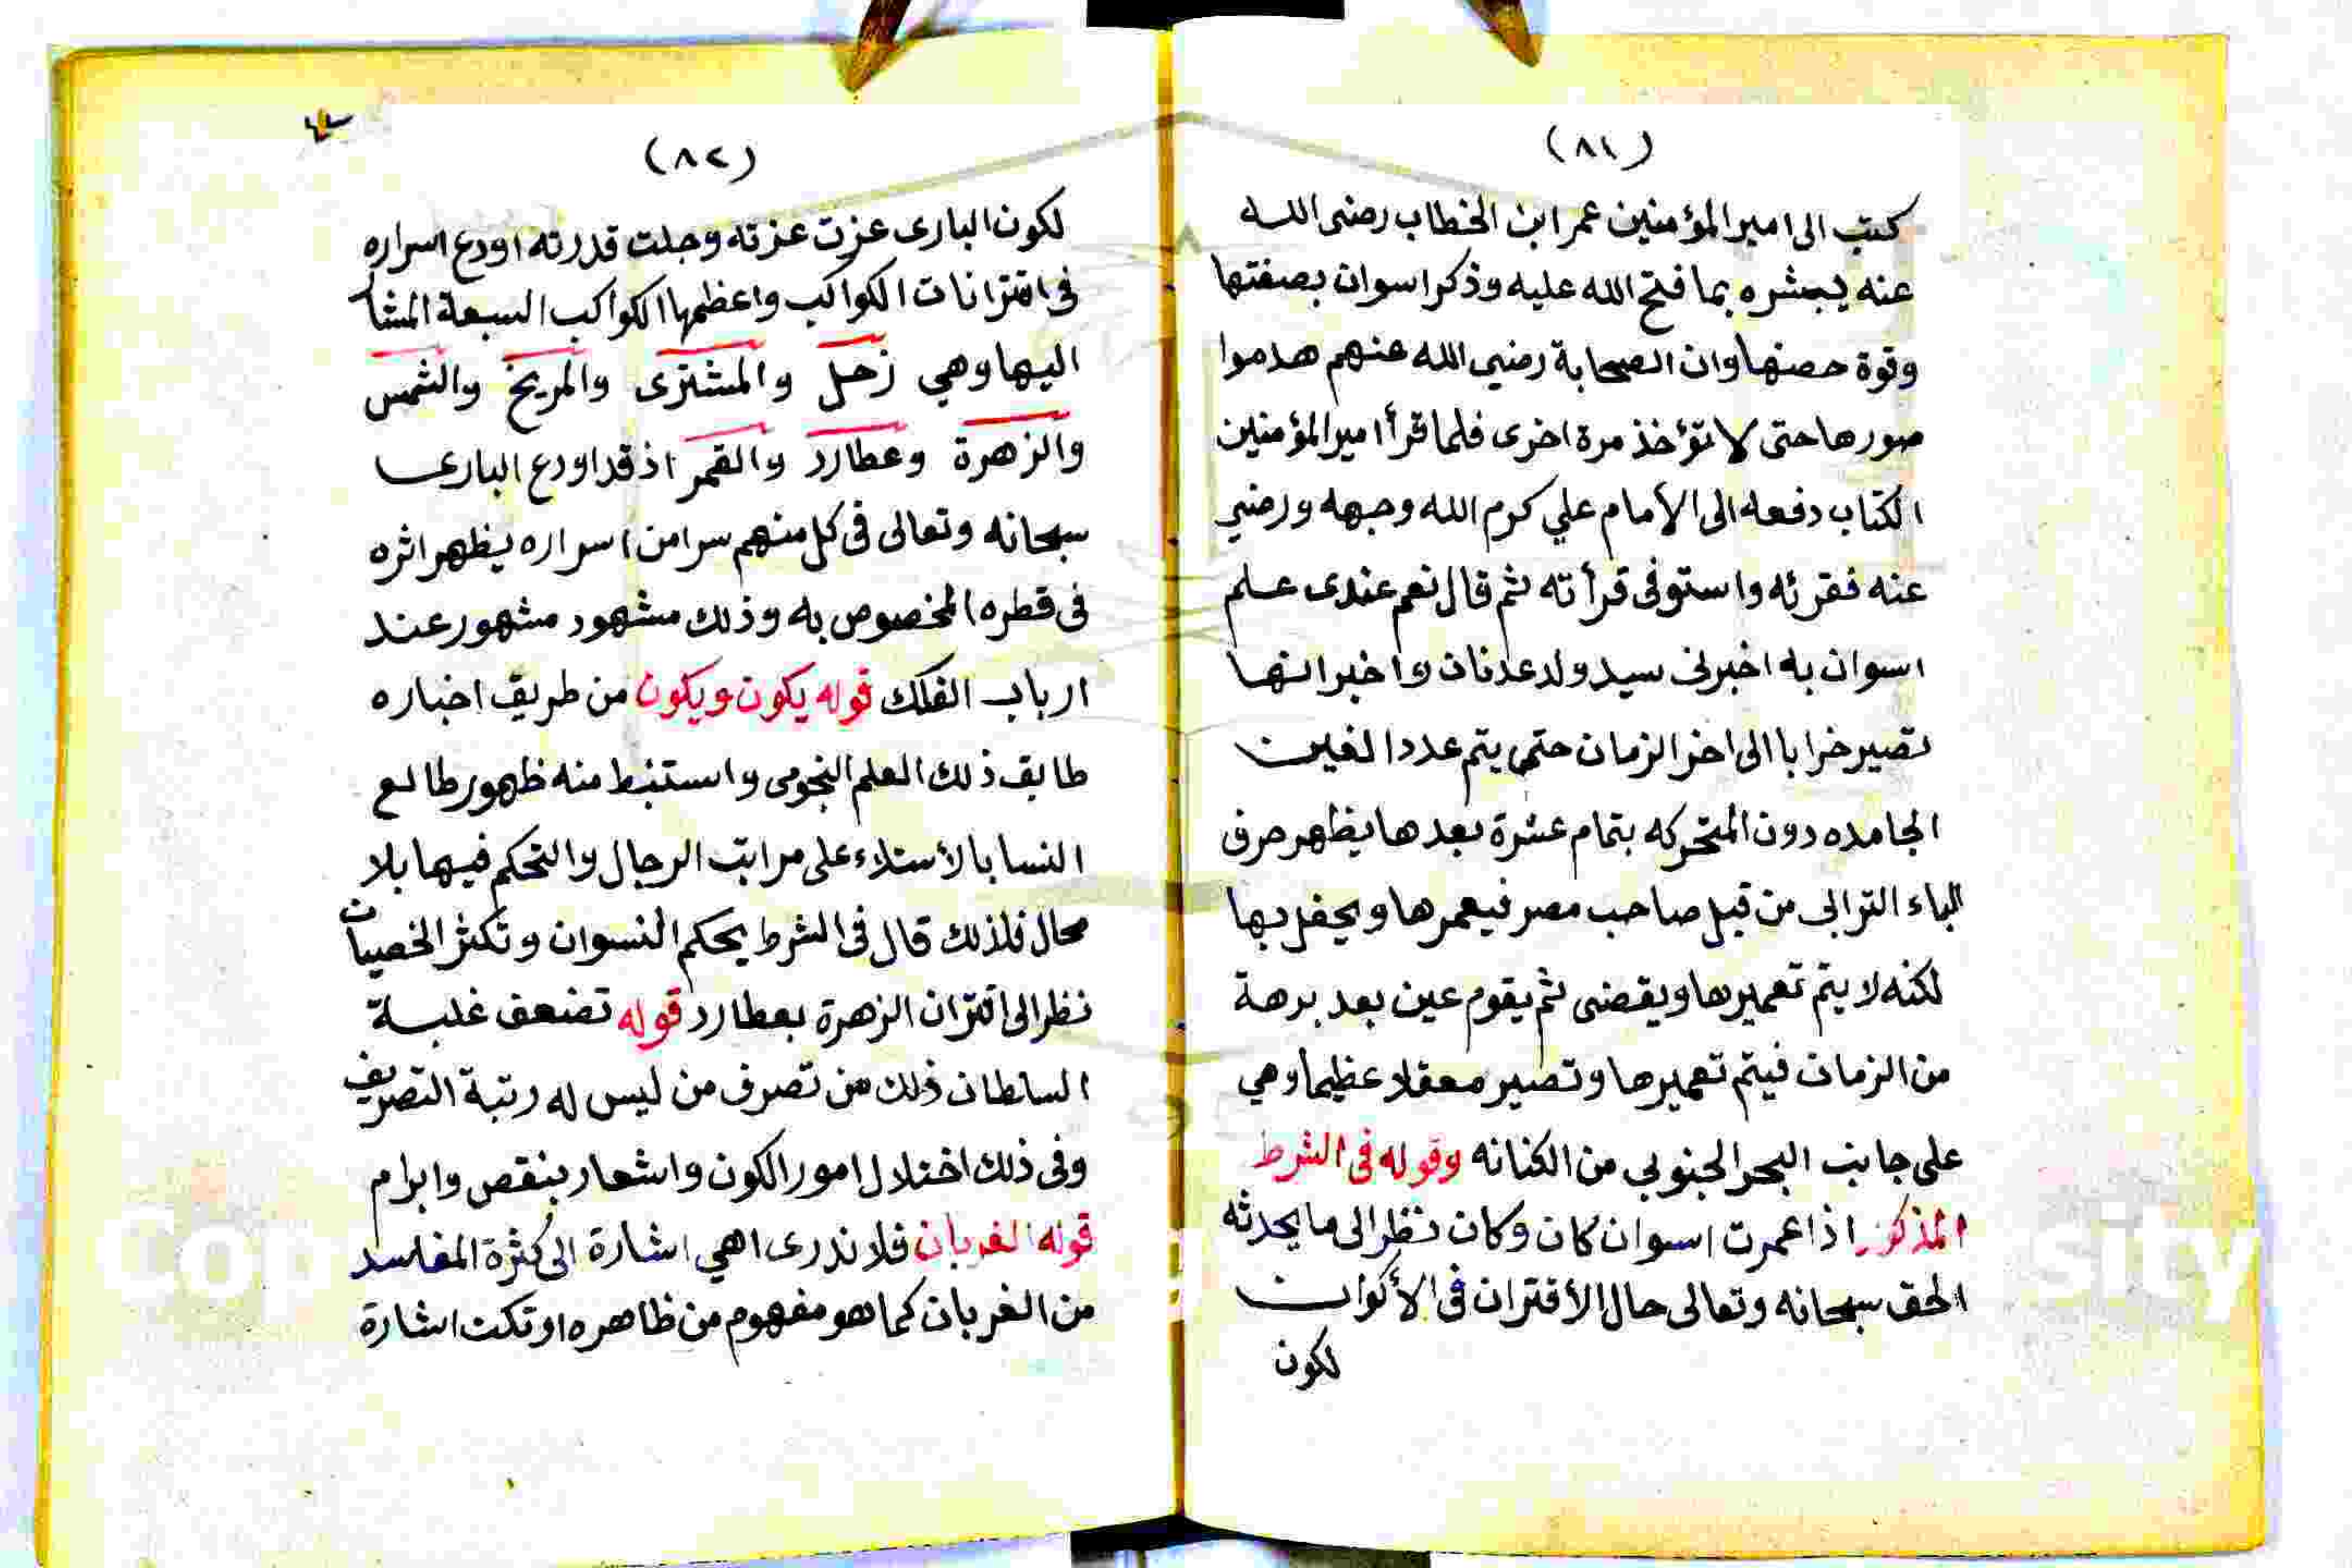 (٨١)
كتب الى امير المؤمنين عمر ابن الخطاب رضى الله
عنه يبشره بما فتح الله عليه وذكر اسوان بصفتها
وقوة حصنها وان الصحابة رضي الله عنهم هدموا
صورها حتى لا تؤخذ مرة اخرى فلما قرأ امير المؤمنين
الكتاب دفعه الى الأمام علي كرم الله وجهه ورضي
عنه فقرئه واستوفى قرأته ثم قال نعم عندى علم
اسوان به اخبرنى سيد ولد عدنان واخبر انها
تصير خرابا الى اخر الزمان حتى يتم عدد الغين
الجامده دون المتحركه بتمام عشرة بعدها يظهر حرف
الباء الترابى من قبل صاحب مصر فيعمرها ويحفل بها
لكنه لا يتم تعميرها ويقضى ثم يقوم عين بعد برهة
من الزمان فيتم تعميرها وتصير معقلا عظيما وهي
على جانب البحر الجنوبي من الكنانه وقوله فى الشرط
المذكور اذا عمرت اسوان كان وكان نظر الى ما يحدثه
الحق سبحانه وتعالى حال الأقتران فى الأكوان
لكون
(٨٢)
لكون البارى عزت عزته وجلت قدرته اودع اسراره
فى اقترانات الكواكب واعظمها الكواكب السبعة المشا
اليها وهي زحل والمشترى والمريخ والشمس
والزهرة وعطارد والقمر اذ قد اودع البارى
سبحانه وتعالى فى كل منهم سرا من اسراره يظهر اثره
فى قطره المخصوص به وذلك مشهود مشهور عند
ارباب الفلك قوله يكون ويكون من طريق اخباره
طابق ذلك العلم النجومى واستنبط منه ظهور طالع
النسا بالأستلاء على مراتب الرجال والتحكم فيها بلا
محال فلذلك قال فى الشرط يحكم النسوان وتكثر الخصيان
نظر الى اقتران الزهرة بعطارد قوله تضعف غلبة
السلطان ذلك من تصرف من ليس له رتبة التصريف
وفى ذلك اختلال امور الكون واشعار بنقص وابرام
قوله الغربان فلا ندرى اهي اشارة الى كثرة المفاسد
من الغربان كما هو مفهوم من ظاهره او تكت اشارة